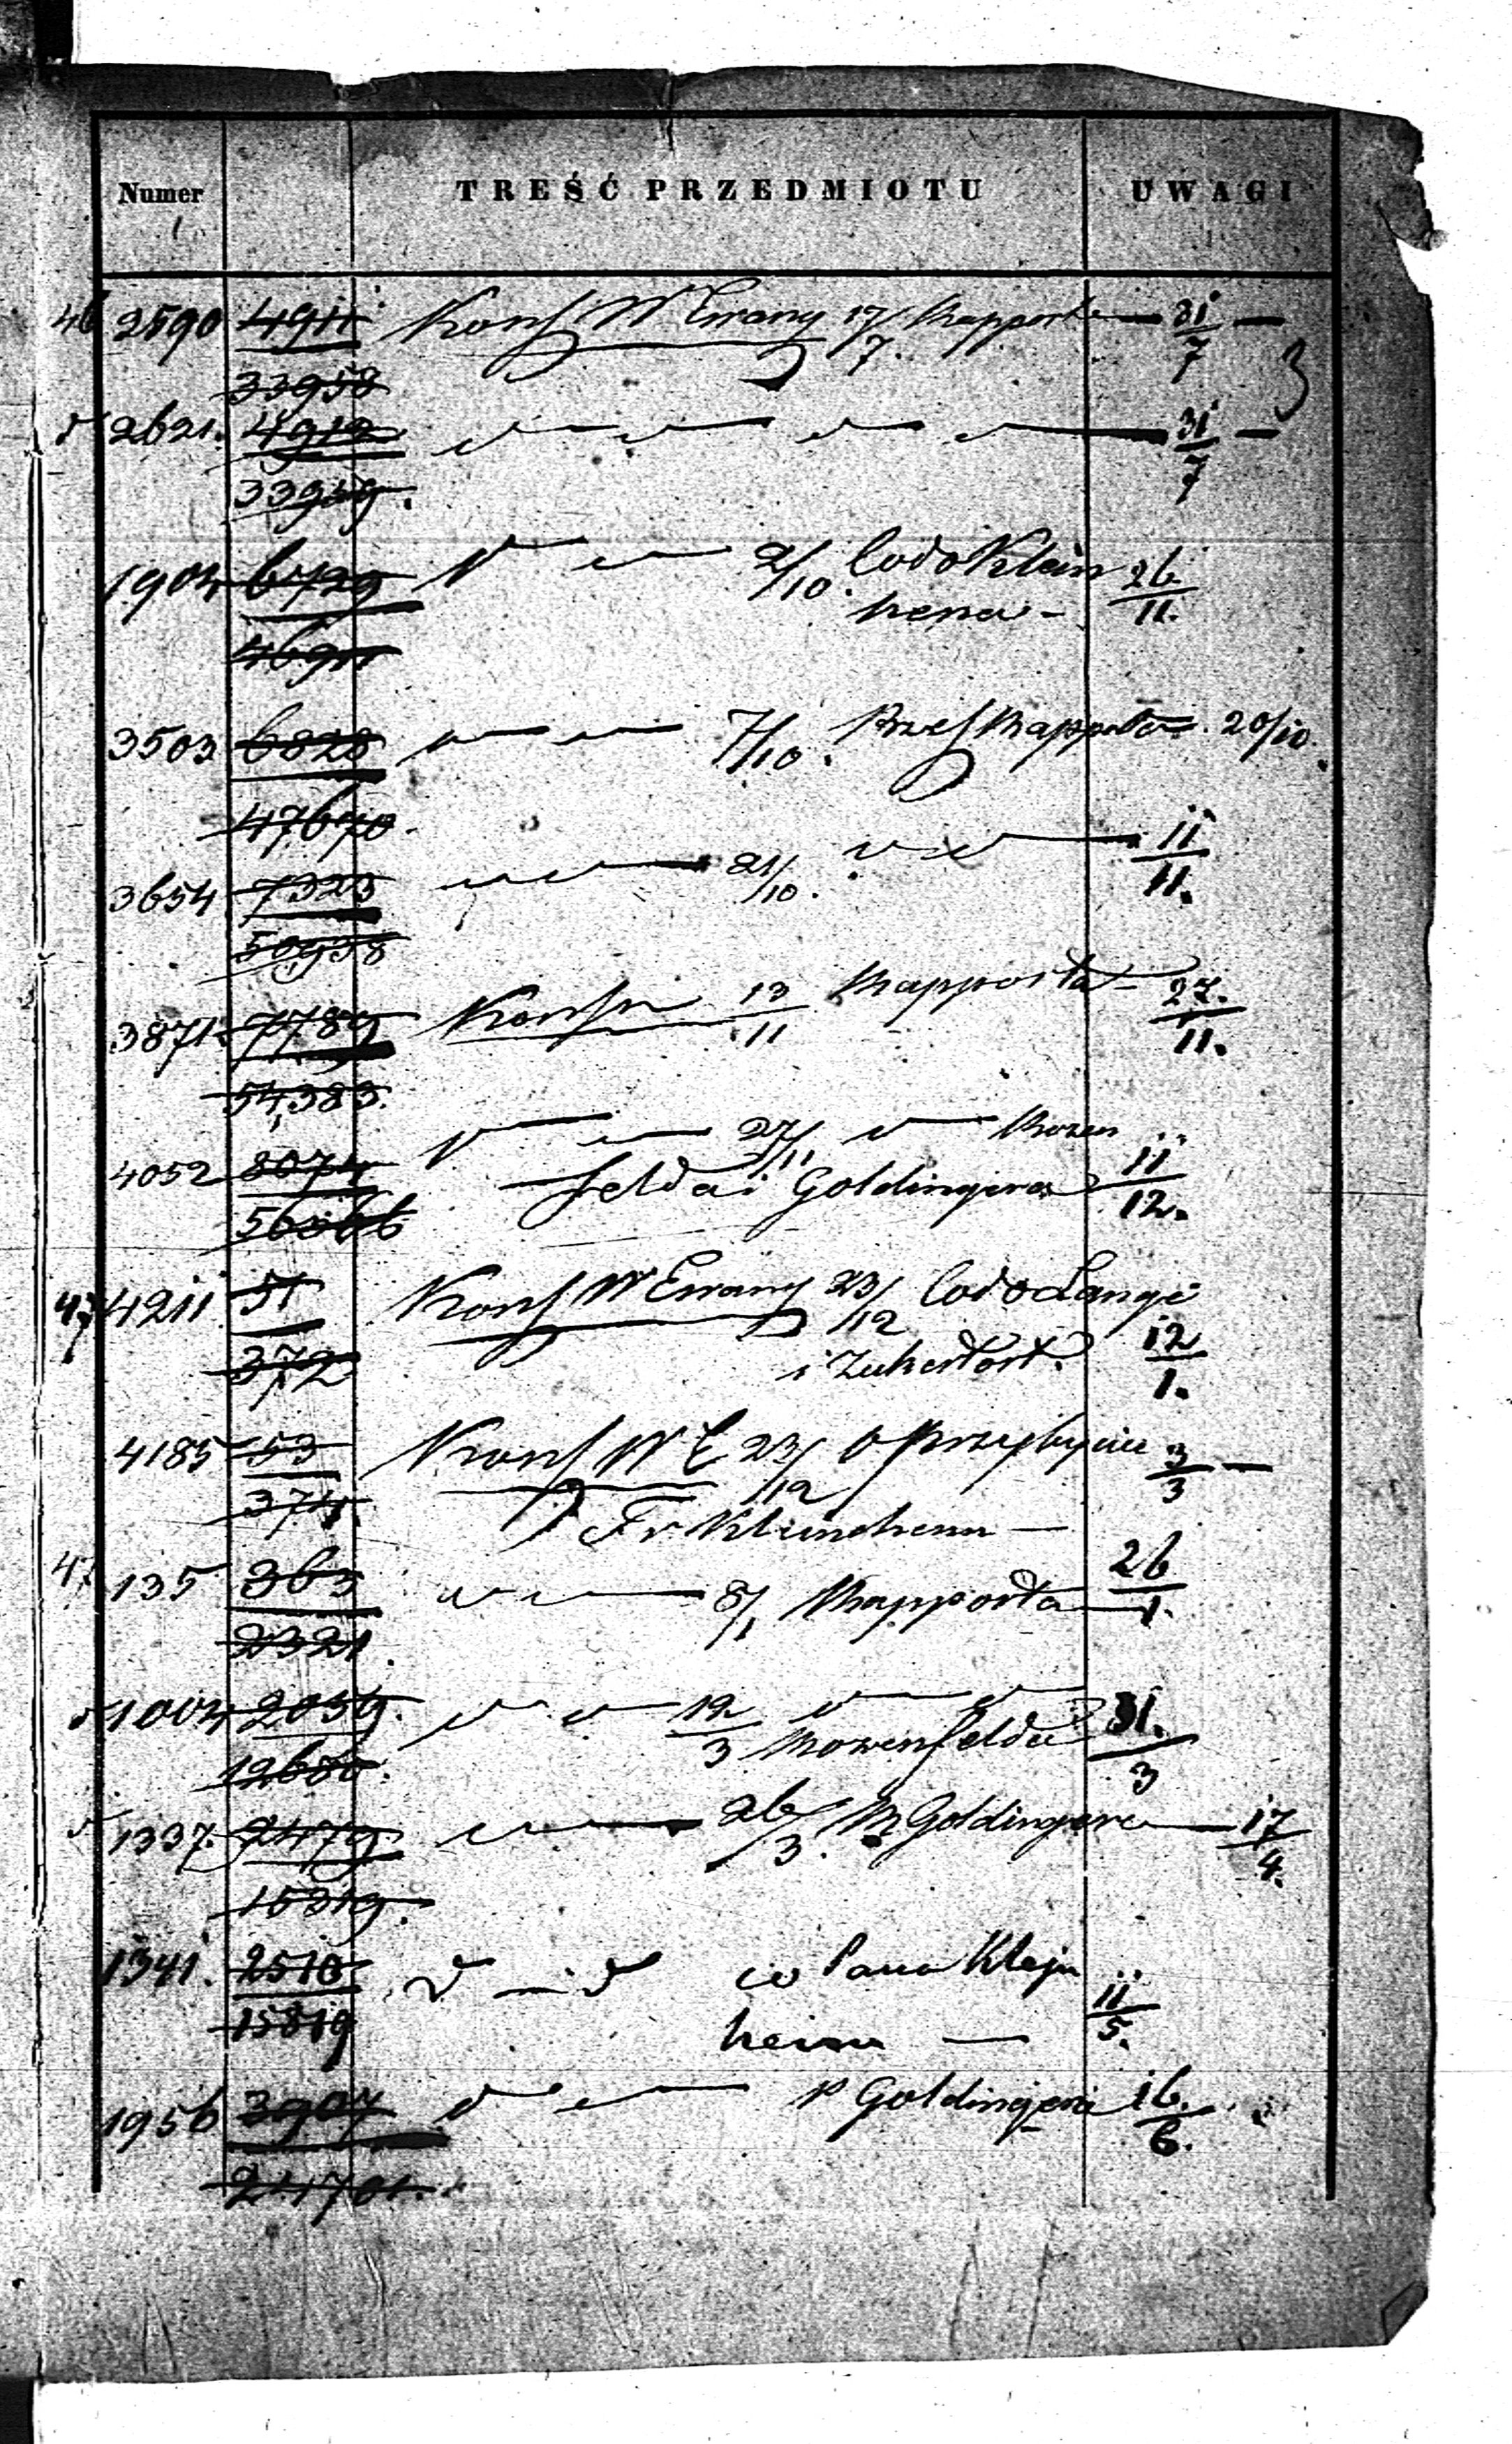 Numer TREŚĆ PRZEDMIOTU UWAGI
46 2590 4911 Kons W Ewang 17/7. Rapporta — 31/7 —
33958
2621. 4912 31/7 —
33959.
1904 6729 2/10. Co do Klein 26/11.
hena -
46911
3503 6828 7/10. Rapporta 20/10.
47670.
3654 7323 21/10. 11/11.
50938
3871 7789 Kons 13/11 Rapporta - 27./11.
54383.
4052 8074 27/11 Rozen 11/12.
felda i Goldingera
56866
47 4211 51 Kons W Ewang 23/12 Co do Lange
372 i Zukertort. 12/1.
4185 53 Kons W E 23/12 O Przybyciu 3/3 —
374. Fr —
47 135 363 8/1 Rapporta 26/1.
2321.
1004 2039. 12/3 31./3
Rozenfelda
12680.
1337. 2479. 26/3. R Goldingera — 17/4.
15319.
1341. 2518 co Pana Klejn
15819 heina — 11/5.
1956 3907 P Goldingera 16./6.
24701.